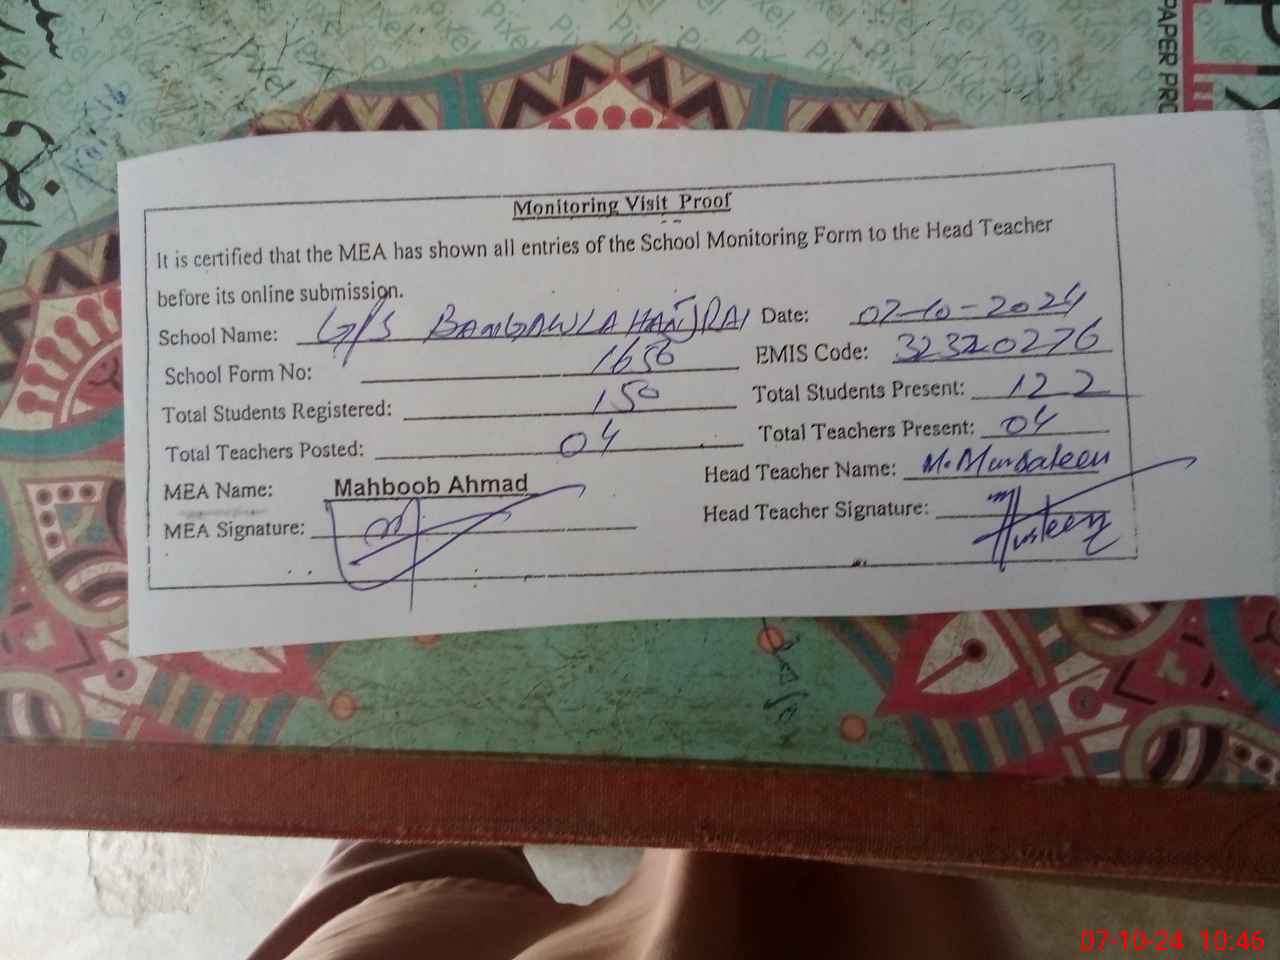 Monitoring Visit Proof
It is certified that the MEA has shown all entries of the School Monitoring Form to the Head Teacher
before its online submission.
School Name: G/S BANGAWLA HANJRAI Date: 07-10-2024
School Form No: 1650 EMIS Code: 32320276
Total Students Registered: 150 Total Students Present: 122
Total Teachers Posted: 04 Total Teachers Present: 04
MEA Name: Mahboob Ahmad Head Teacher Name: M. Mursaleen
MEA Signature: Head Teacher Signature:
PAPER PRO
Pixel
07-10-24 10:46